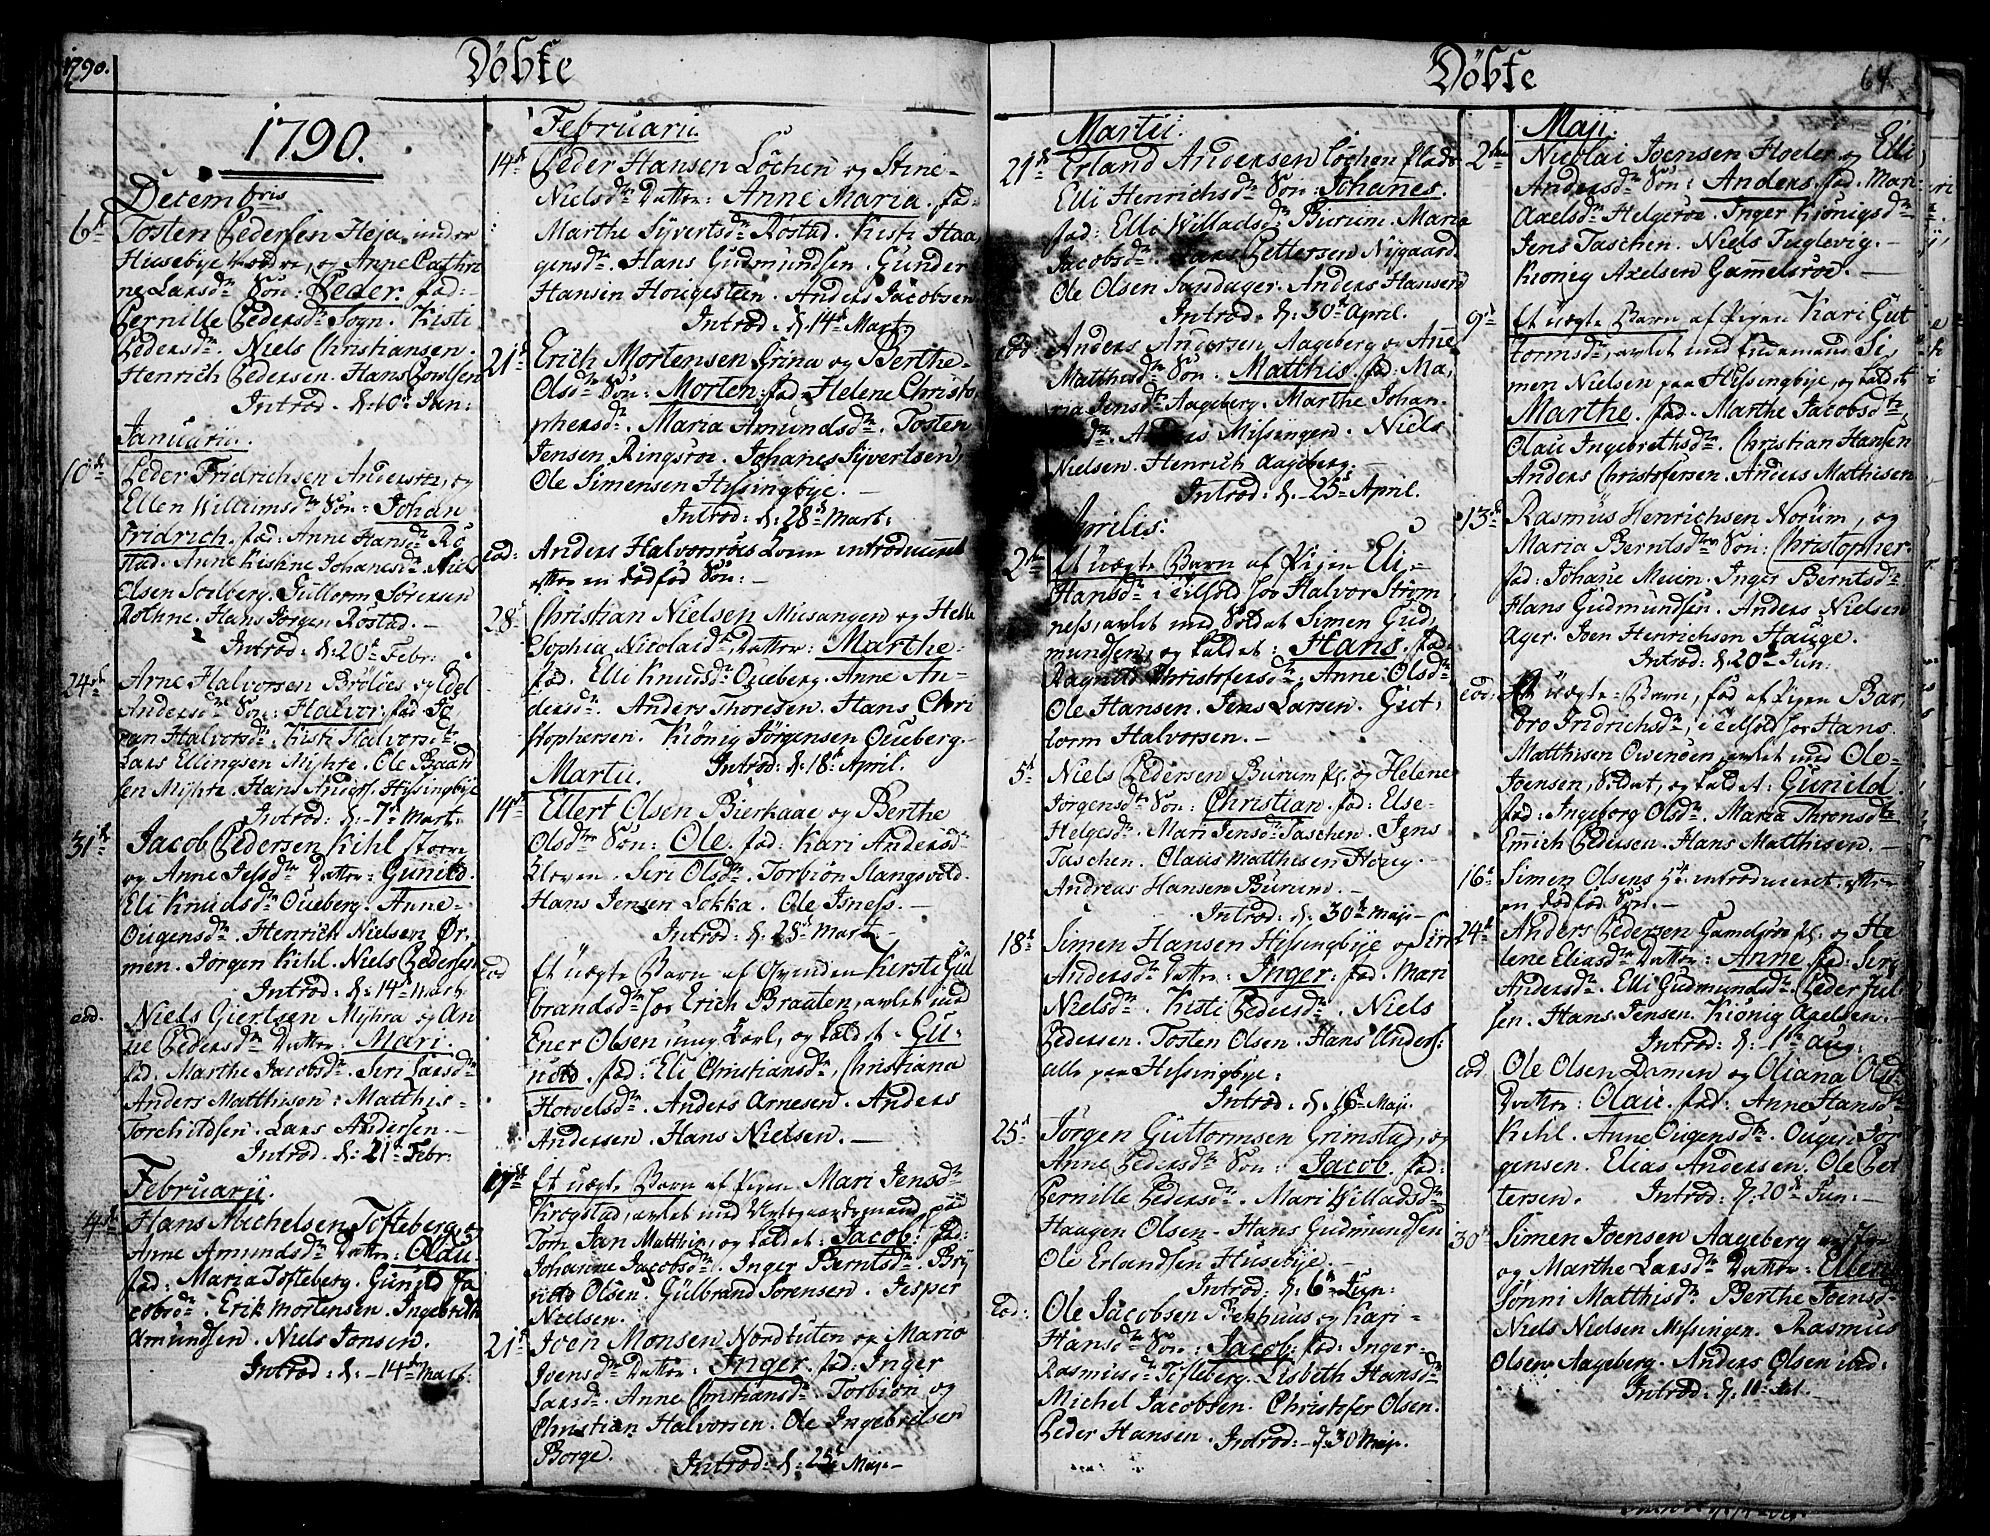 1790.
Döbte
1790.
Decembris
6t Tosten Pedersen Heja, under
Huusebye, og Anne Cathri
ne Larsdr Søn: Peder. fad:
Pernille Pedersdr Sogn. Kisti
Pedersdr. Niels Christiansen.
Henrich Pedersen. Hans Povelsen
Introd. d: 10 Jan:
Januarii.
10de Peder Fridrichsen Anderstu, og
Ellen Willumsdr Søn: Johan
Fridrich. fad: Anne Hansdr Rö
stad. Anne Kirstine Johansdr. Niels
Olsen Solberg. Guttorm Sörensen
Rothne. Hans Jörgen Röstad.
Introd: d: 20 Febr:
24de Arne Halvorsen Brölöes og Edel
Andersdr Søn: Halvor. fad: Jo
ran Halvorsdr. Kisti Halvorsdr
Lars Ellingsen Myhre. Ole Braand
sen Myhre. Hans Anders. Hessingbye
Introd: d: 7 Mart:
31te Jacob Pedersen Kihl store
og Anne Jegsdr Datter: Gunild.
Eli Knudsdr Oueberg. Anne
Ougensdr. Henrich Nielsen Ør,
men. Jörgen Kihl. Niels Pedersen
Introd: d: 14 Mart:
eod. Niels Giertsen Myhra og An
ne Pedersdr Datter: Mari.
fad. Marthe Jacobsdr. Siri Larsdr
Anders Matthisen. Matthis
Torchildsen. Lars Andersen.
Introd. d: 21 Febr:
Februarii.
14de Hans Michelsen Tofteberg og
Anne Amundsdr Datter: Olau.
fad. Maria Tofteberg. Gunild Ja
cobsdr. Erik Mortensen. Ingebreth
Amundsen. Niels Jonsen.
Introd: d: 14 Mart:
Februarii.
14de Peder Hansen Löchen og Stine
Nielsdr Datter: Anne Maria. fad:
Marthe Syvertsdr Röstad. Kisti Haa,
gensdr. Hans Gudmundsen. Gunder
Hansen Hougesteen. Anders Jacobsen
Introd: d: 14 Mart:
21de Erich Mortensen Grina og Berthe
Olsdr Søn: Morten. fad: Helene Christo,
phersdr. Maria Amundsdr. Tosten
Jensen Ringsröe. Johanes Syvertsen.
Ole Simensen Hessingbye.
Introd: d: 28 Mart:
eod: Anders Halvorsröes Kone introduceret
efter en dödföd Søn:
28 Christian Nielsen Musangen og Helle
Sophia Nicolaidr, Datter: Marthe
fad. Elli Knudsdr Oueberg. Anne An
dersdr. Anders Thoresen. Hans Chri
stophersen. Kiönig Jörgensen Oueberg.
Introd: d: 18 April.
Martii.
14de Ellert Olsen Bierkaae og Berthe
Olsdr Søn: Ole. fad: Kari Andersd
Kloven. Siri Olsdr. Torbiön Slangsvold.
Hans Jensen Lokka. Ole Isness.
Introd: d: 28 Mart:
eod Et uægte Barn af Qvinden Kersti Gul
brandsdr hos Erich Braaten, avlet med
Ener Olsen ung Karl, og kaldet Gu
nild. fad: Eli Christiansdr, Christiana
Hovelsdr. Anders Arnesen. Anders
Andersen. Hans Nielsen.
17de Et uægte Barn af Pigen Mari Jensdr
Krogstad, avlet med paa
Tom Jan Matthis, og kaldet: Jacob. fad:
Johanne Jacobsdr. Inger Berntsdr. Bry
nild Olsen. Gulbrand Sörensen. Jesper
Nielsen.
21de Joen Monsen Nordtuten og Maria
Joensdr Datter: Inger. fad: Inger
Larsdr. Anne Christiansdr. Torbiön og
Christian Halvorsen. Ole Ingebretsen
Borge.
Introd: d: 25 Maji
Döbte
64.
Martii.
21de Erland Andersen Löchen Plads
Elli Henrichsdr Søn: Johanes.
fad: Elli Willadsdr Burum. Maria
Jacobsdr. Lars Pettersen Nygaard.
Ole Olsen Sandager. Anders Hansen
Introd: d: 30 April.
eod Anders Andersen Aageberg og Ane
Matthisdr Søn: Matthis. fad: Ma,
ria Jensdr Aageberg. Marthe Johan
dr. Anders Missingen. Niels
Nielsen. Henrich Aageberg.
Introd: d: 25 April.
Aprilis:
2den Et uægte Barn af Pigen Eli
Hansdr i Tilhold hos Halvor Ström
ness, avlet med Soldat Simen Gud,
mundsen, og kaldet: Hans. fad:
Ragnild Christofersdr. Anne Olsdr
Ole Hansen. Jens Larsen. Gut,
torm Halvorsen.
5te Niels Pedersen Burum pl. og Helene
Jörgensdr Søn: Christian. fad: Else
Helgesdr. Mari Jensdr Taschen. Jens
Taschen. Olaus Matthesen Houg.
Andreas Hansen Burum.
Introd: d: 30 Maji
18de Simen Hansen Hessingbye og Siri
Andersdr Datter: Inger: fad. Mari
Nielsdr. Kisti Pedersdr. Niels
Pedersen. Tosten Olsen. Hans Anders:
alle paa Hessingbye:
Introd: d: 16 Maji.
25de Jörgen Guttormsen Grimstad, og
Anne Pedersdr Søn: Jacob. fad:
Pernille Pedersdr. Mari Willadsdr
Haagen Olsen. Hans Gudmundsen
Ole Erlandsen Husebye.
Introd: d: 6 Jun:
Eod: Ole Jacobsen Bekhuus og Kari
Hansdr Søn: Jacob: fad: Inger
Rasmusdr Tofteberg. Lisbeth Hansdr
Michel Jacobsen. Christofer Olsen.
Peder Hansen. Introd: d. 30 Maji.
Maji.
2den Nicolai Joensen Floeler og Elli
Andersdr Søn: Anders. fad. Mari
Axelsdr Helgeröe. Inger Kiönigsdr
Jens Taschen. Niels Tuglevig.
Kiönig Axelsen Gamelsröe.
9de Et uægte Barn af Pigen Kari Gut
tormsdr, avlet med Enkemand Si,
men Nielsen paa Hessingbye, og kaldet
Marthe. fad. Marthe Jacobsdr,
Olau Ingebrethsdr. Christian Hansen
Anders Christofersen. Anders Mathisen
13de Rasmus Henrichsen Norum, og
Maria Berntsdr Søn: Christopher.
fad: Johane Meum. Inger Berntsdr
Hans Gudmundsen. Anders Nielsen
Ager. Joen Henrichsen Hauge.
Introd: d: 20 Jun:
eod: Et uægte Barn, föd af Pigen Bar,
bro Fridrichsdr, i Tilhold hos Hans
Matthisen Oisenöen, avlet med Ole
Joensen, Soldat, og kaldet: Gunild.
fad: Ingeborg Olsdr. Maria Thronsdr
Emich Pedersen. Hans Matthisen.
16 Simen Olsens K. introduceret efter
en dödföd Søn.
24de Anders Pedersen Gamelsröe pl. og He
lene Eliasdr Datter: Anne. fad: Siri
Andersdr. Elli Gudmundsdr. Peder Jul
sen. Hans Jensen. Kiönig Axelsen.
Introd: d. 1 Aug:
eod. Ole Olsen Damen og Oliana Olsdr
Datter: Olau. fad: Anne Hansdr
Kihl. Anne Ougensdr. Ougen Jör
gensen. Elias Andersen. Ole Pet
tersen. Introd: d. 20 Jun:
30 Simen Joensen Aageberg
og Marthe Larsdr Datter: Ellen
Jönni Matthisdr Berthe Joensdr
Niels Nielsen Missingen. Rasmus
Olsen Aageberg. Anders Olsen ibid:
Introd: d. 11 Jul.